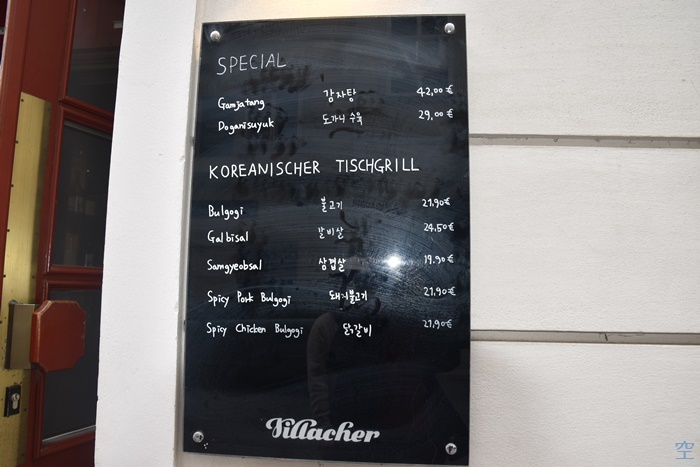 SPECIAL
Gamjatang 감자탕 42,00 €
Doganisuyuk 도가니 수육 29,00 €
KOREANISCHER TISCHGRILL
Bulgogi 불고기 21,90€
Galbisal 갈비살 24,50€
Samgyeobsal 삼겹살 19,90€
Spicy Pork Bulgogi 돼지불고기 21,90€
Spicy Chicken Bulgogi 닭갈비 21,90€
Villacher
空